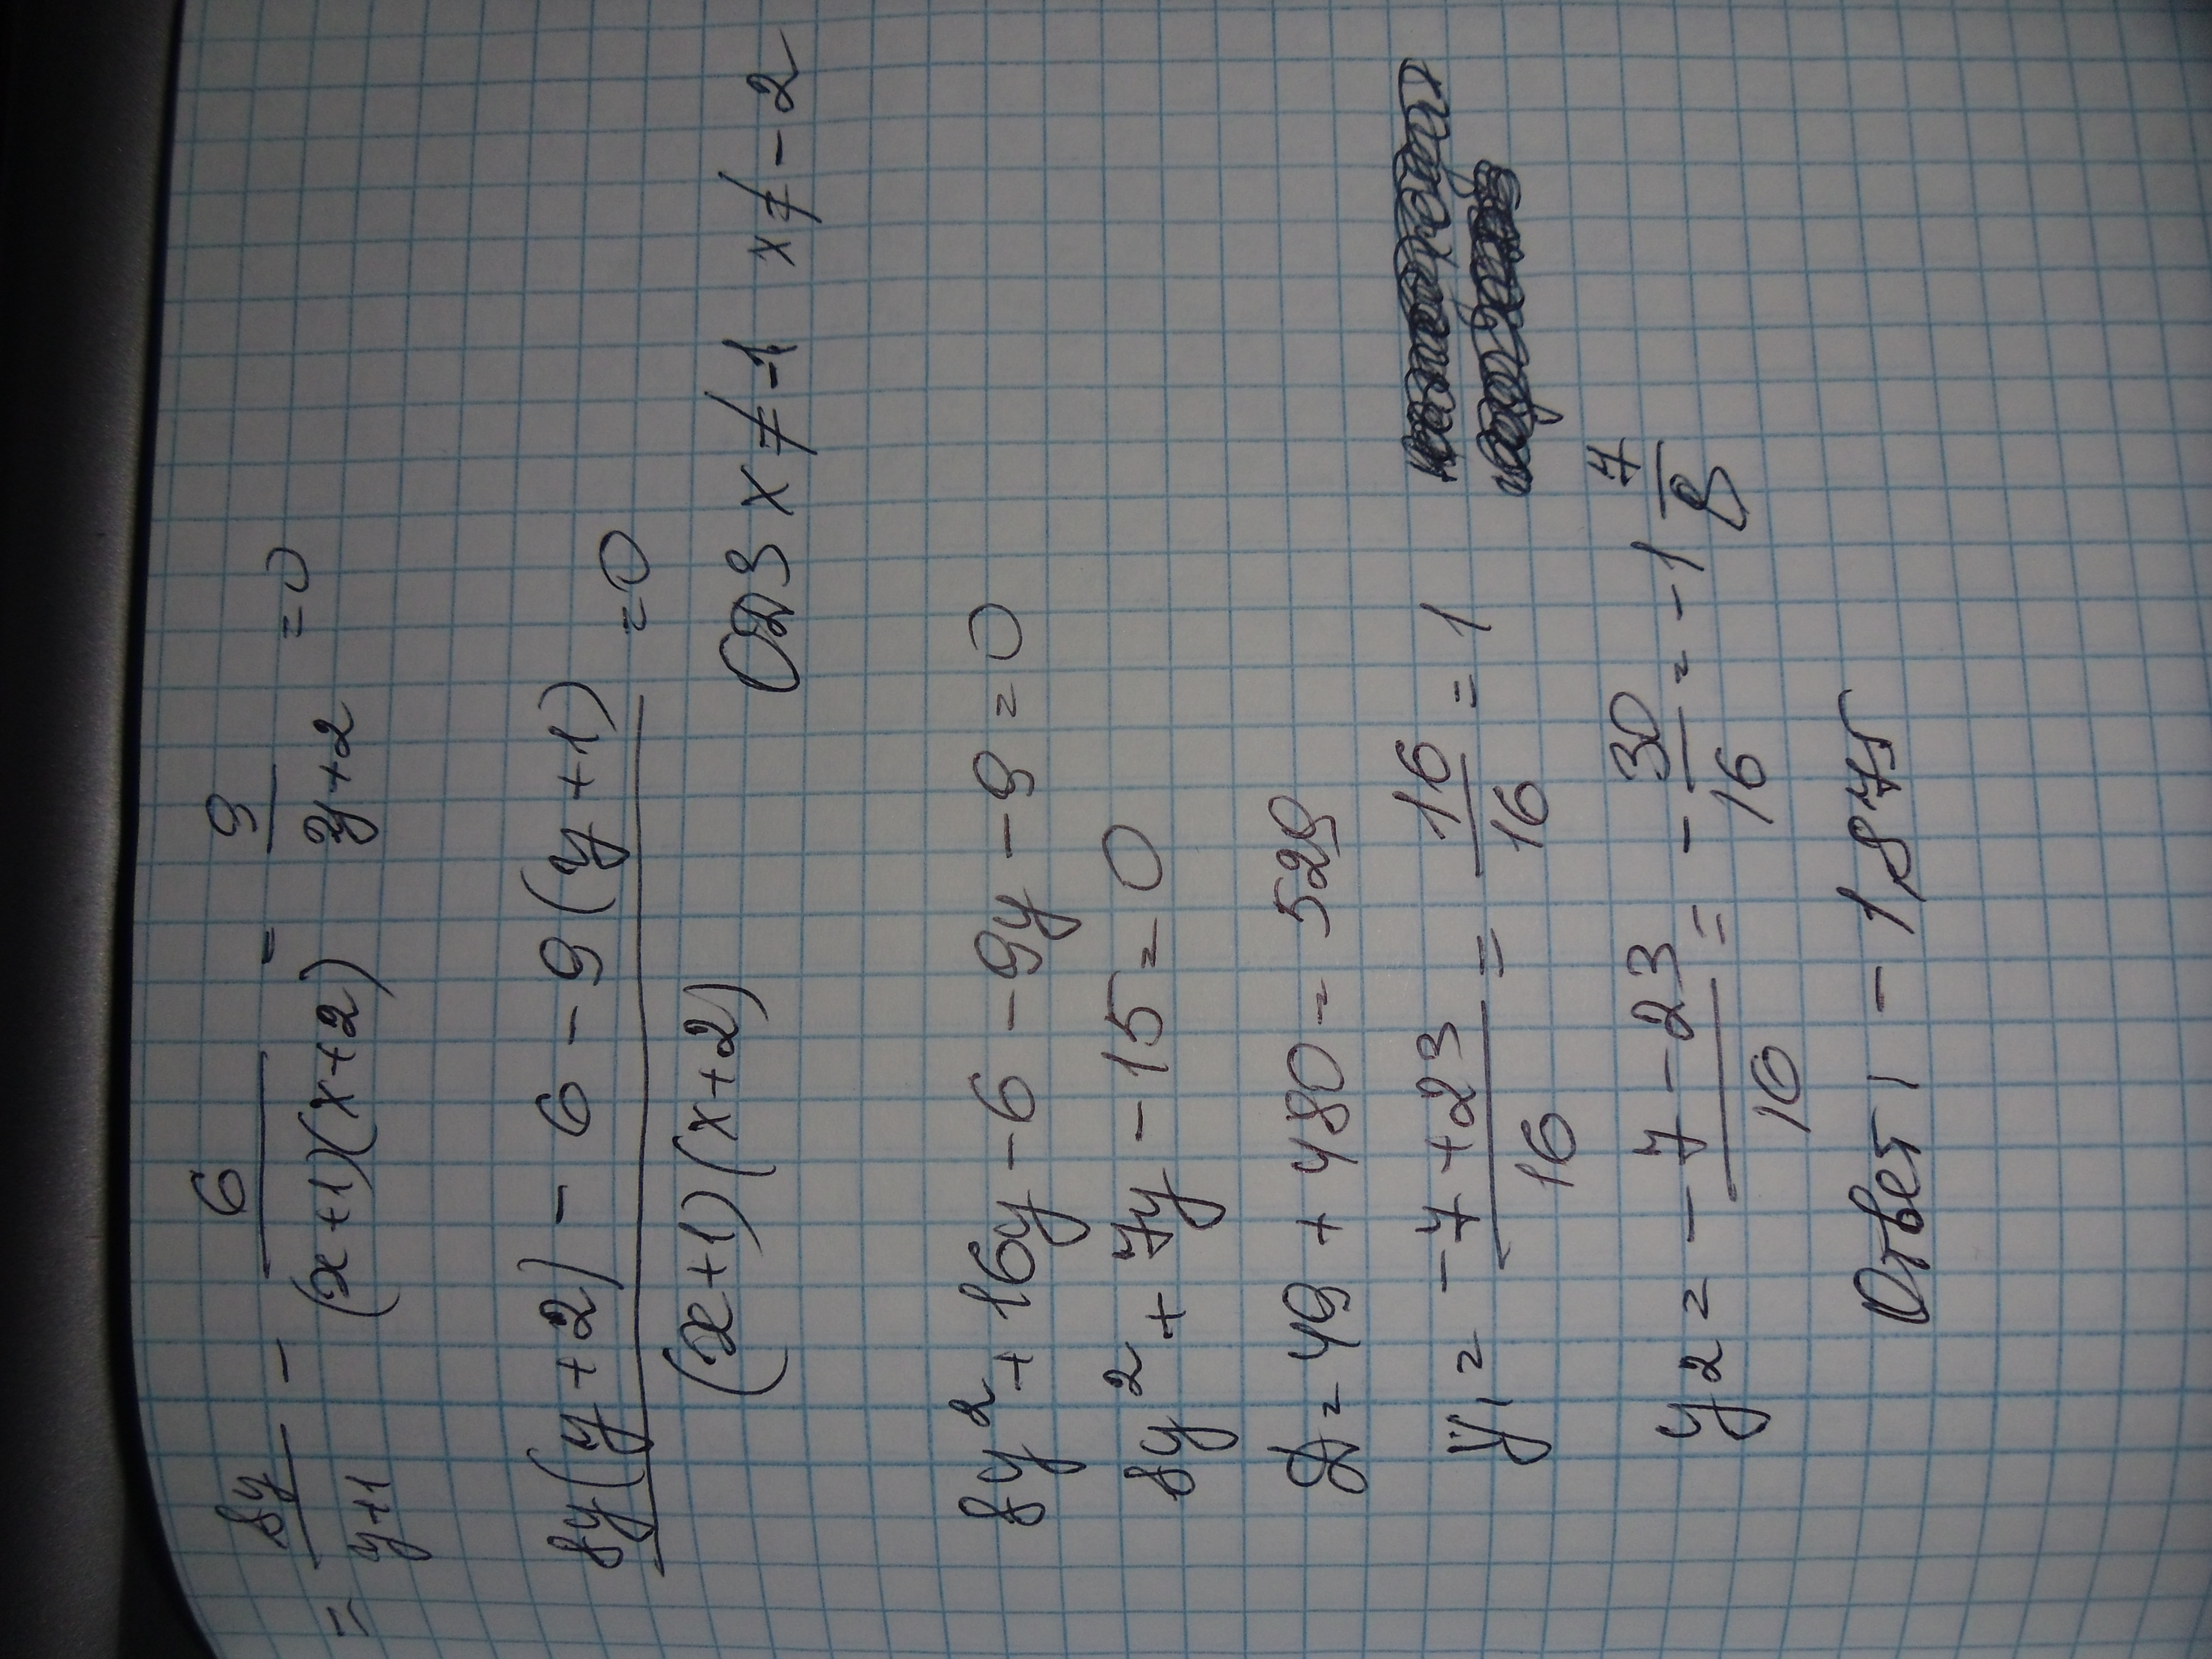 = 8y/(y+1) - 6/((x+1)(x+2)) - 9/(y+2) = 0
(8y(y+2) - 6 - 9(y+1))/((x+1)(x+2)) = 0
ОДЗ x ≠ -1 x ≠ -2
8y² + 16y - 6 - 9y - 9 = 0
8y² + 7y - 15 = 0
D = 49 + 480 = 529
y₁ = (-7 + 23)/16 = 16/16 = 1
y₂ = (-7 - 23)/10 = -30/16 = -1 7/8
Ответ 1 - 1,875